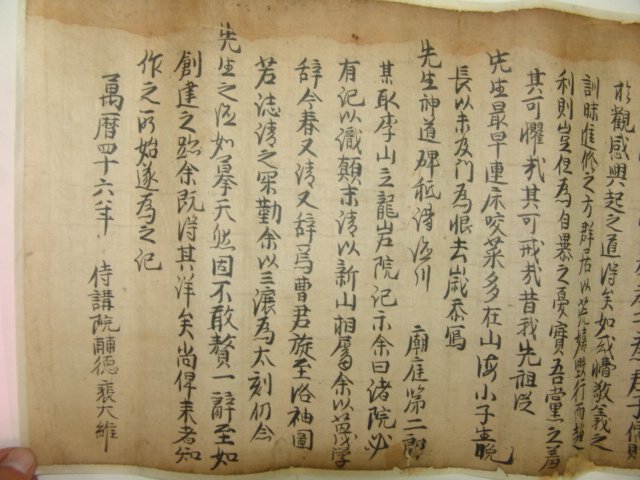 於觀感興起之道得矣如或惰敬義之
訓昧進修之方群居以荒嬉行而趍
利則豈但為自暴之憂實吾黨之羞
其可懼哉其可戒哉昔我先祖從
先生最早連床咬菜多在山海小子生晩
長以未及門為恨去歲忝寫
先生神道碑秪謁德川 廟庭第二郞
某取李山立龍岩院記示余曰諸院必
有記以識顚末請以新山相屬余以蔑学
辞今春又請又辞焉曺君旋至洛袖圖
若誌請之深勤余以三讓為太刻仍念
先生之德如摹天然固不敢贅一辭至如
創建之跡余既得其詳矣尚俾来者知
作之所始遂為之記
萬曆四十六年 侍講院輔德裵大維